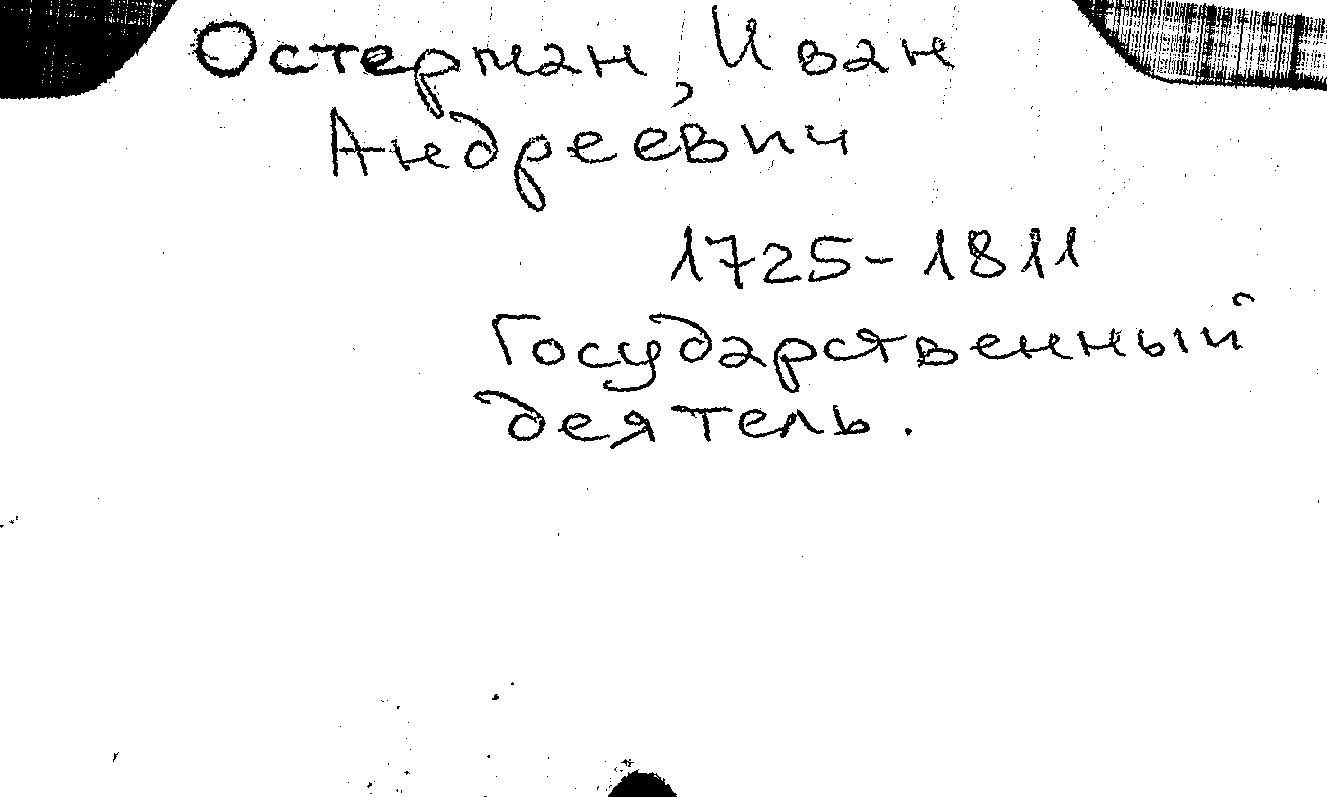 Остерман, Иван
Андреевич
1725-1811
Государственный
деятель.